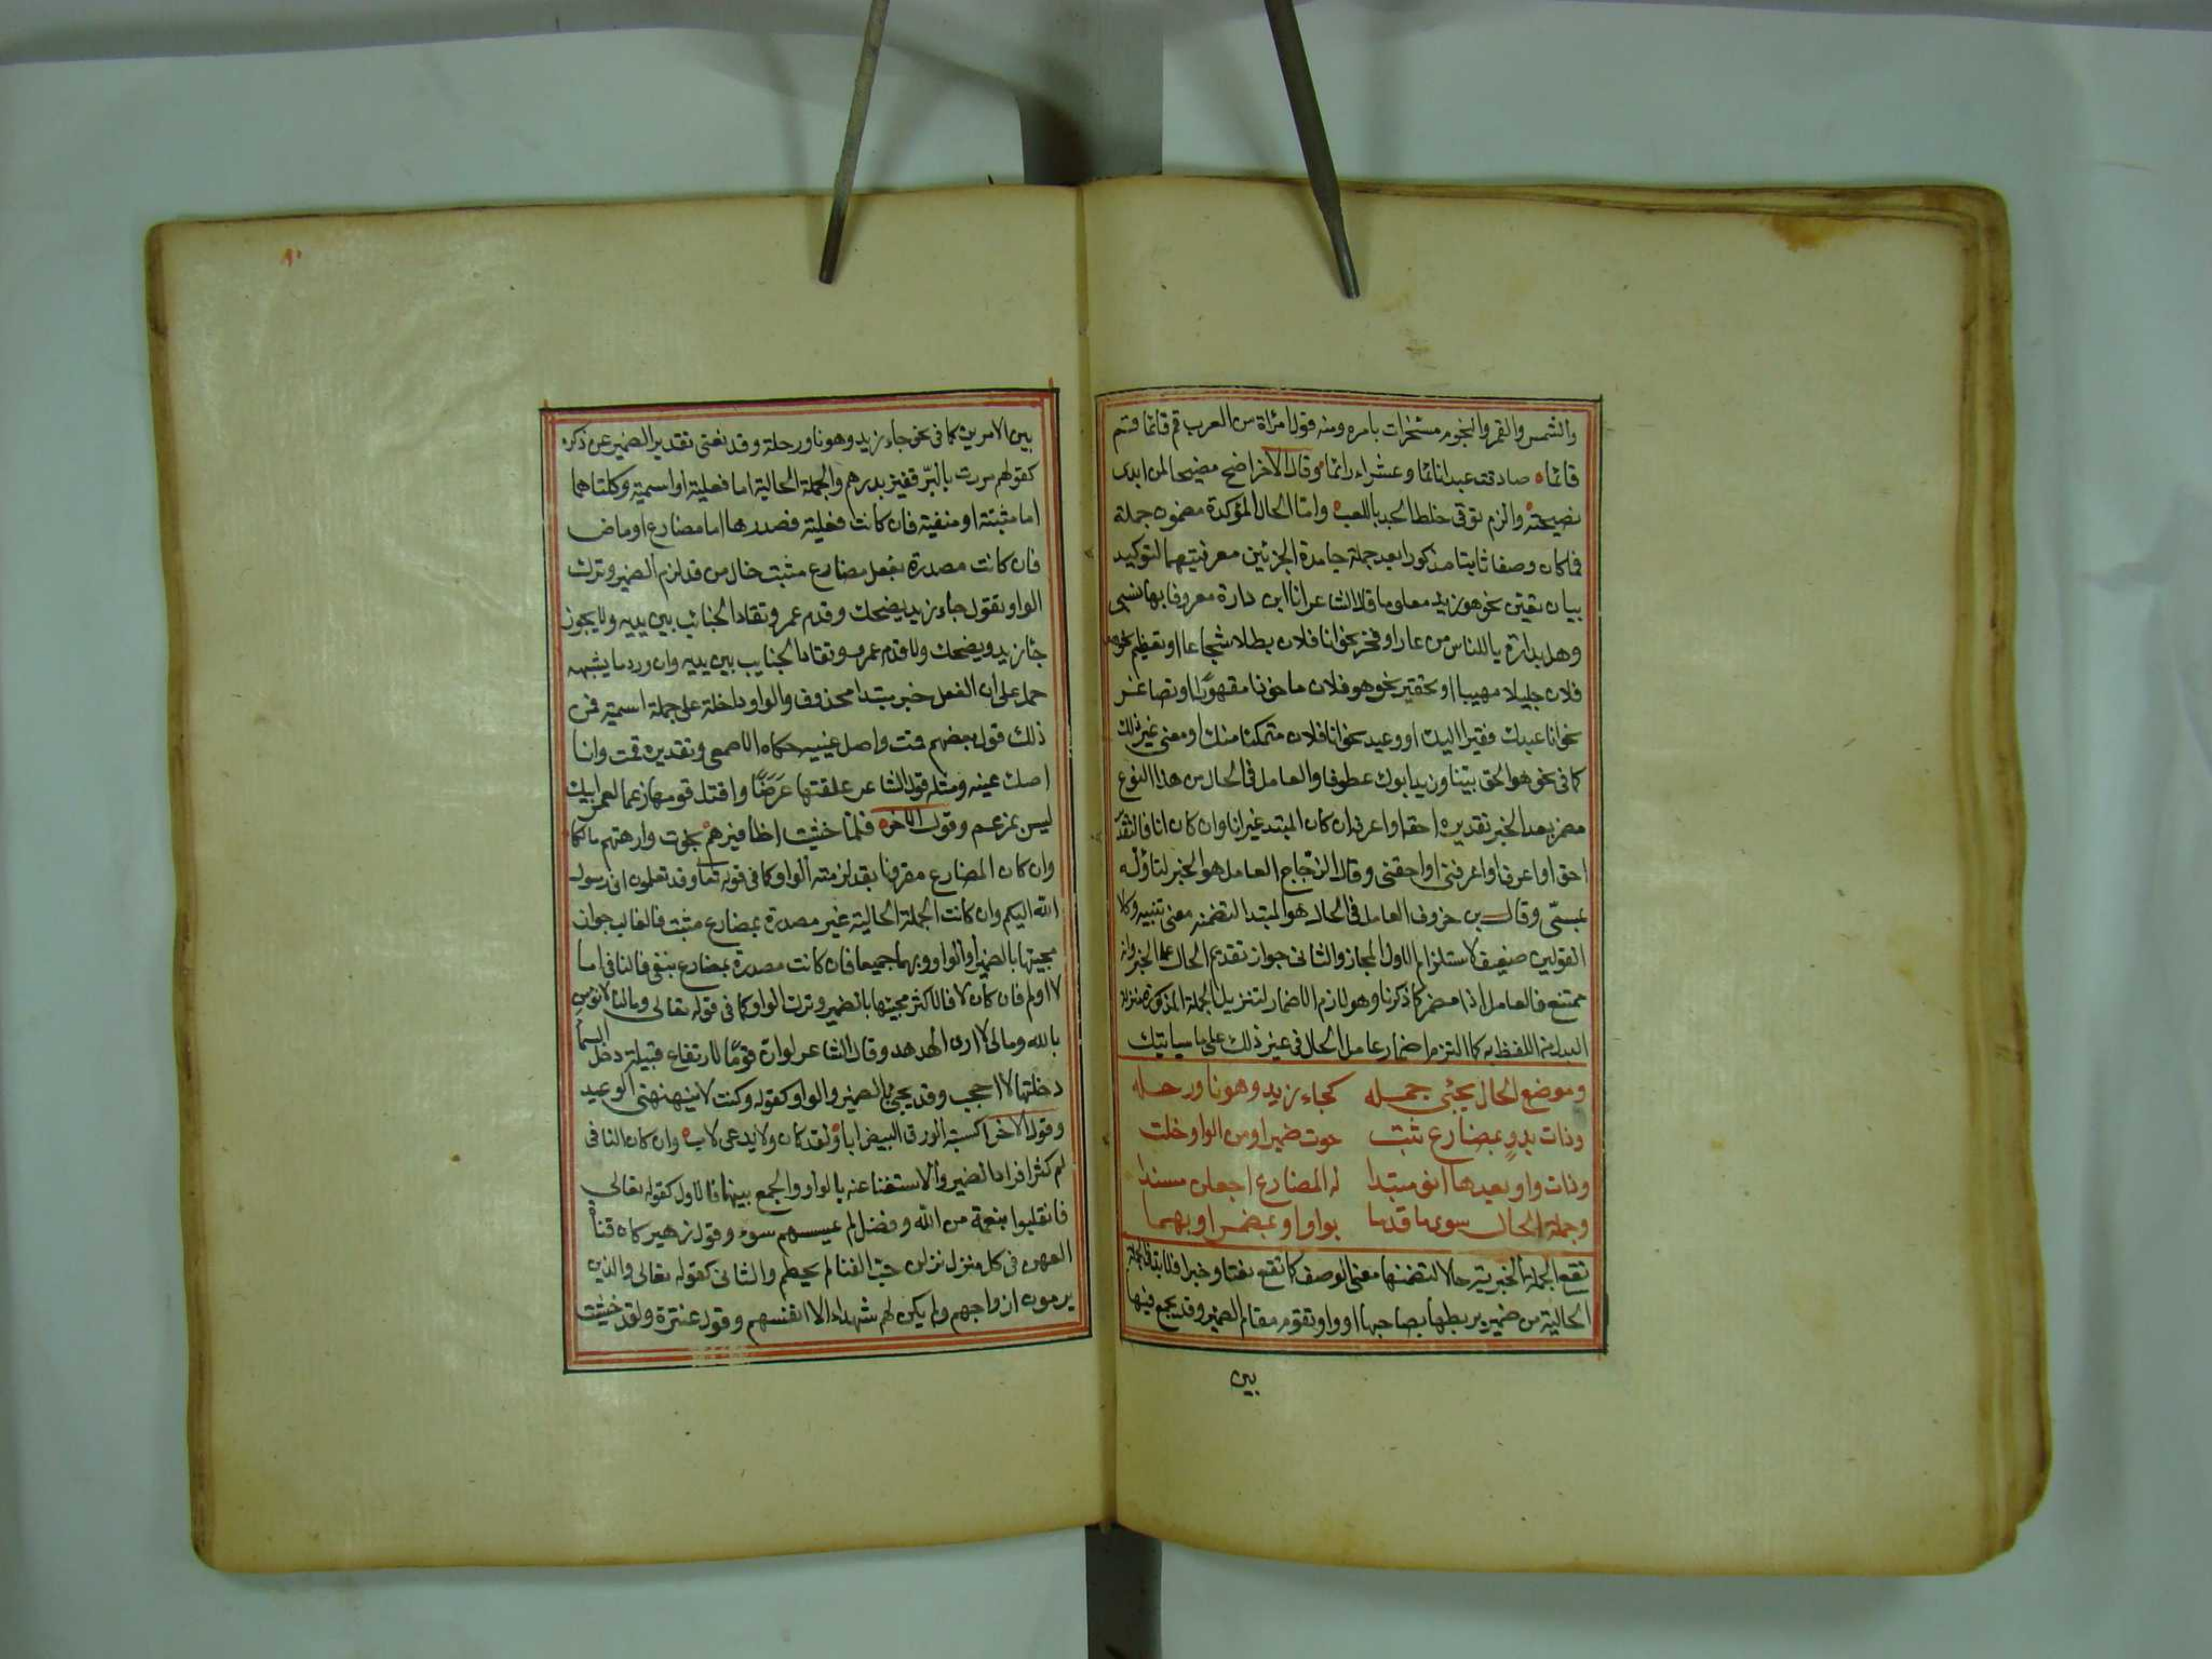 والشمس والقمر والنجوم مسخرات بامره ومنه قول امراة من العرب قم قائما قم
قائما صادفت عبدا نائما وعشراء رائما وقال الاخر اصخ مصيخا لمن ابدى
نصيحته والزم توقى خلط الجد باللعب واما الحال المؤكدة مضمون جملة
فما كان وصفا ثابتا مذكورا بعد جملة جامدة الجزئين معرفتيهما لتوكيد
بيان يقين نحو هو زيد معلوما قال الشاعر انا ابن دارة معروفا بها نسبي
وهل بدارة ياللناس من عار او فخر نحو انا فلان بطلا شجاعا او تعظيم نحو هو
فلان جليلا مهيبا او تحقير نحو هو فلان ماخوذا مقهورا او تصاغر
نحو انا عبدك فقيرا اليك او وعيد نحو انا فلان متمكنا منك او معنى غير ذلك
كما في نحو هو الحق بينا وزيد ابوك عطوفا والعامل في الحال من هذا النوع
مضمر بعد الخبر تقديره احقه او اعرفه ان كان المبتدا غير انا وان كان انا فالتقدير
احق او اعرف او اعرفني او احقني وقال الزجاج العامل هو الخبر لتاوله
بمسمى وقال بن خروف العامل في الحال هو المبتدا لتضمنه معنى تنبيه وكلا
القولين ضعيف لاستلزام الاول المجاز والثاني جواز تقديم الحال على الخبر وانه
ممتنع فالعامل اذا مضمر كما ذكرنا وهو لازم الاضمار لتنزيل الجملة المذكورة منزلة
البدل من اللفظ به كما التزم اضمار عامل الحال في غير ذلك على ما سياتيك
وموضع الحال يجئي جمله كجاء زيد وهو ناو رحله
وذات بدو بمضارع ثبت حوت ضميرا ومن الواو خلت
وذات واو بعدها انو مبتدا له المضارع اجعلن مسندا
وجملة الحال سوى ما قدما بواو او بمضمر او بهما
تقع الجملة الخبرية حالا لتضمنها معنى الوصف كما تقع نعتا وخبرا فلا بد في الجملة
الحالية من ضمير يربطها بصاحبها او واو تقوم مقام الضمير وقد يجمع فيها
بين
٨٠
بين الامرين كما في نحو جاء زيد وهو ناو رحلة وقد نغنى تقدير الضمير عن ذكره
كقولهم مررت بالبر قفيز بدرهم والجملة الحالية اما فعلية او اسمية وكلتاهما
اما مثبتة او منفية فان كانت فعلية فصدرها اما مضارع او ماض
فان كانت مصدرة بفعل مضارع مثبت خال من قد لزم الضمير وترك
الواو تقول جاء زيد يضحك وقدم عمرو تقاد الجنائب بين يديه ولا يجوز
جا زيد ويضحك ولا قدم عمرو وتقاد الجنايب بين يديه وان ورد ما يشبهه
حمل على ان الفعل خبر مبتدا محذوف والواو داخلة على جملة اسمية فمن
ذلك قول بعضهم قمت واصك عينيه حكاه الاصمعي وتقديره قمت وانا
اصك عينه ومثله قول الشاعر علقتها عرضا واقتل قومها زعما لعمر ابيك
ليس بمزعم وقول الاخر فلما خشيت اظافيرهم نجوت وارهنهم مالكا
وان كان المضارع مقرونا بقد لزمته الواو كما في قوله تعا وقد تعلمون اني رسول
الله اليكم وان كانت الجملة الحالية غير مصدرة بمضارع مثبت فالغالب جواز
مجيئها بالضمير او الواو وبهما جميعا فان كانت مصدرة بمضارع منفي فالنافي اما
لا او لم فان كان لا فالاكثر مجيئها بالضمير وترك الواو كما في قوله تعالى وما لنا لا نؤمن
بالله ومالي لا ارى الهدهد وقال الشاعر لو ان قوما لارتفاع قبيلة دخلوا السما
دخلتها لا احجب وقد يجئ بالضمير والواو كقوله وكنت لا ينهنهني الوعيد
وقول الاخر اكسبته الورق البيض ابا ولقد كان ولا يدعى لاب وان كان النافي
لم كثر افراد الضمير والاستغنا عنه بالواو والجمع بينهما فالاول كقوله تعالى
فانقلبوا بنعمة من الله وفضل لم يمسسهم سوء وقول زهير كان فتات
العهن في كل منزل نزلن حب الفنا لم يحطم والثاني كقوله تعالى والذين
يرمون ازواجهم ولم يكن لهم شهداء الا انفسهم وقول عنترة ولقد خشيت